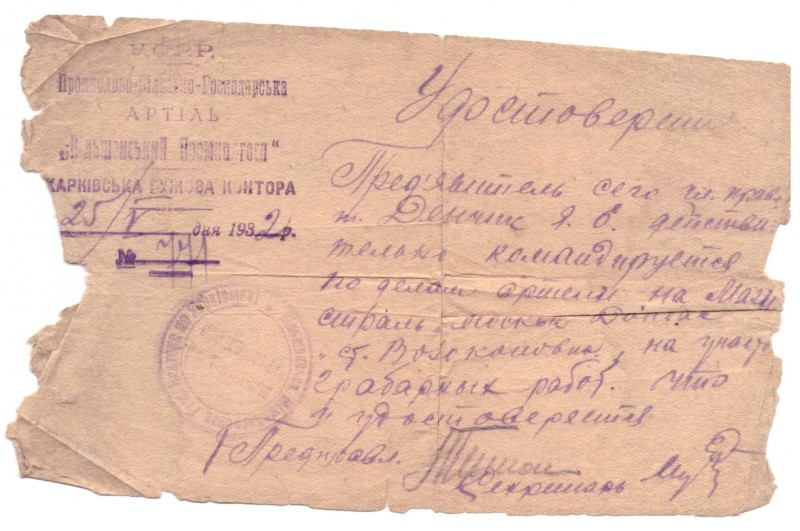 У.С.Р.Р.
Промислово-Сільсько-Господарська
АРТІЛЬ
ХАРКІВСЬКА ГУЖОВА КОНТОРА
25/V дня 1932 р.
№ 771
Удостоверени
Пред'явитель сего чл. правл
т. Денчик Я. Е. действи
тельно командируется
по делам артели на Маги
страль Москва Донбас
"ст. Волоконовка, на участ
грабарных работ. что
и удостоверяется
Предправл.
Секретарь